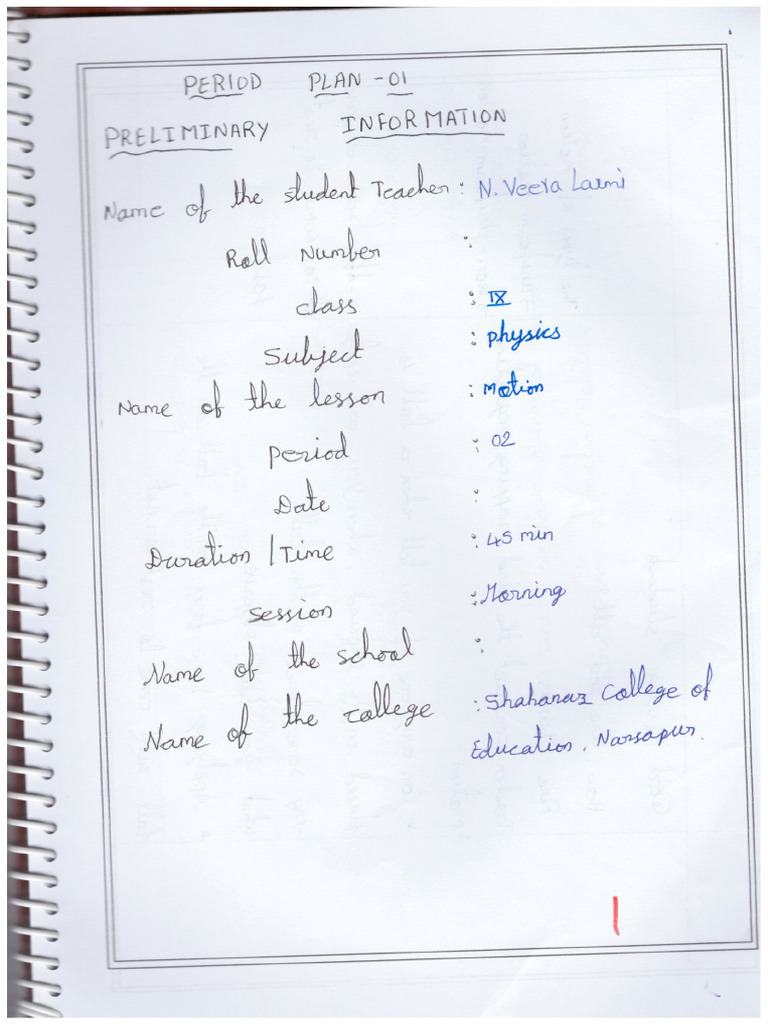 PERIOD PLAN - 01
PRELIMINARY INFORMATION
Name of the student Teacher : N. Veera Laxmi
Roll Number :
class : IX
Subject : physics
Name of the lesson : Motion
Period : 02
Date :
Duration / Time : 45 min
Session : Morning
Name of the school :
Name of the college : Shahanaz College of
Education, Narsapur.
1